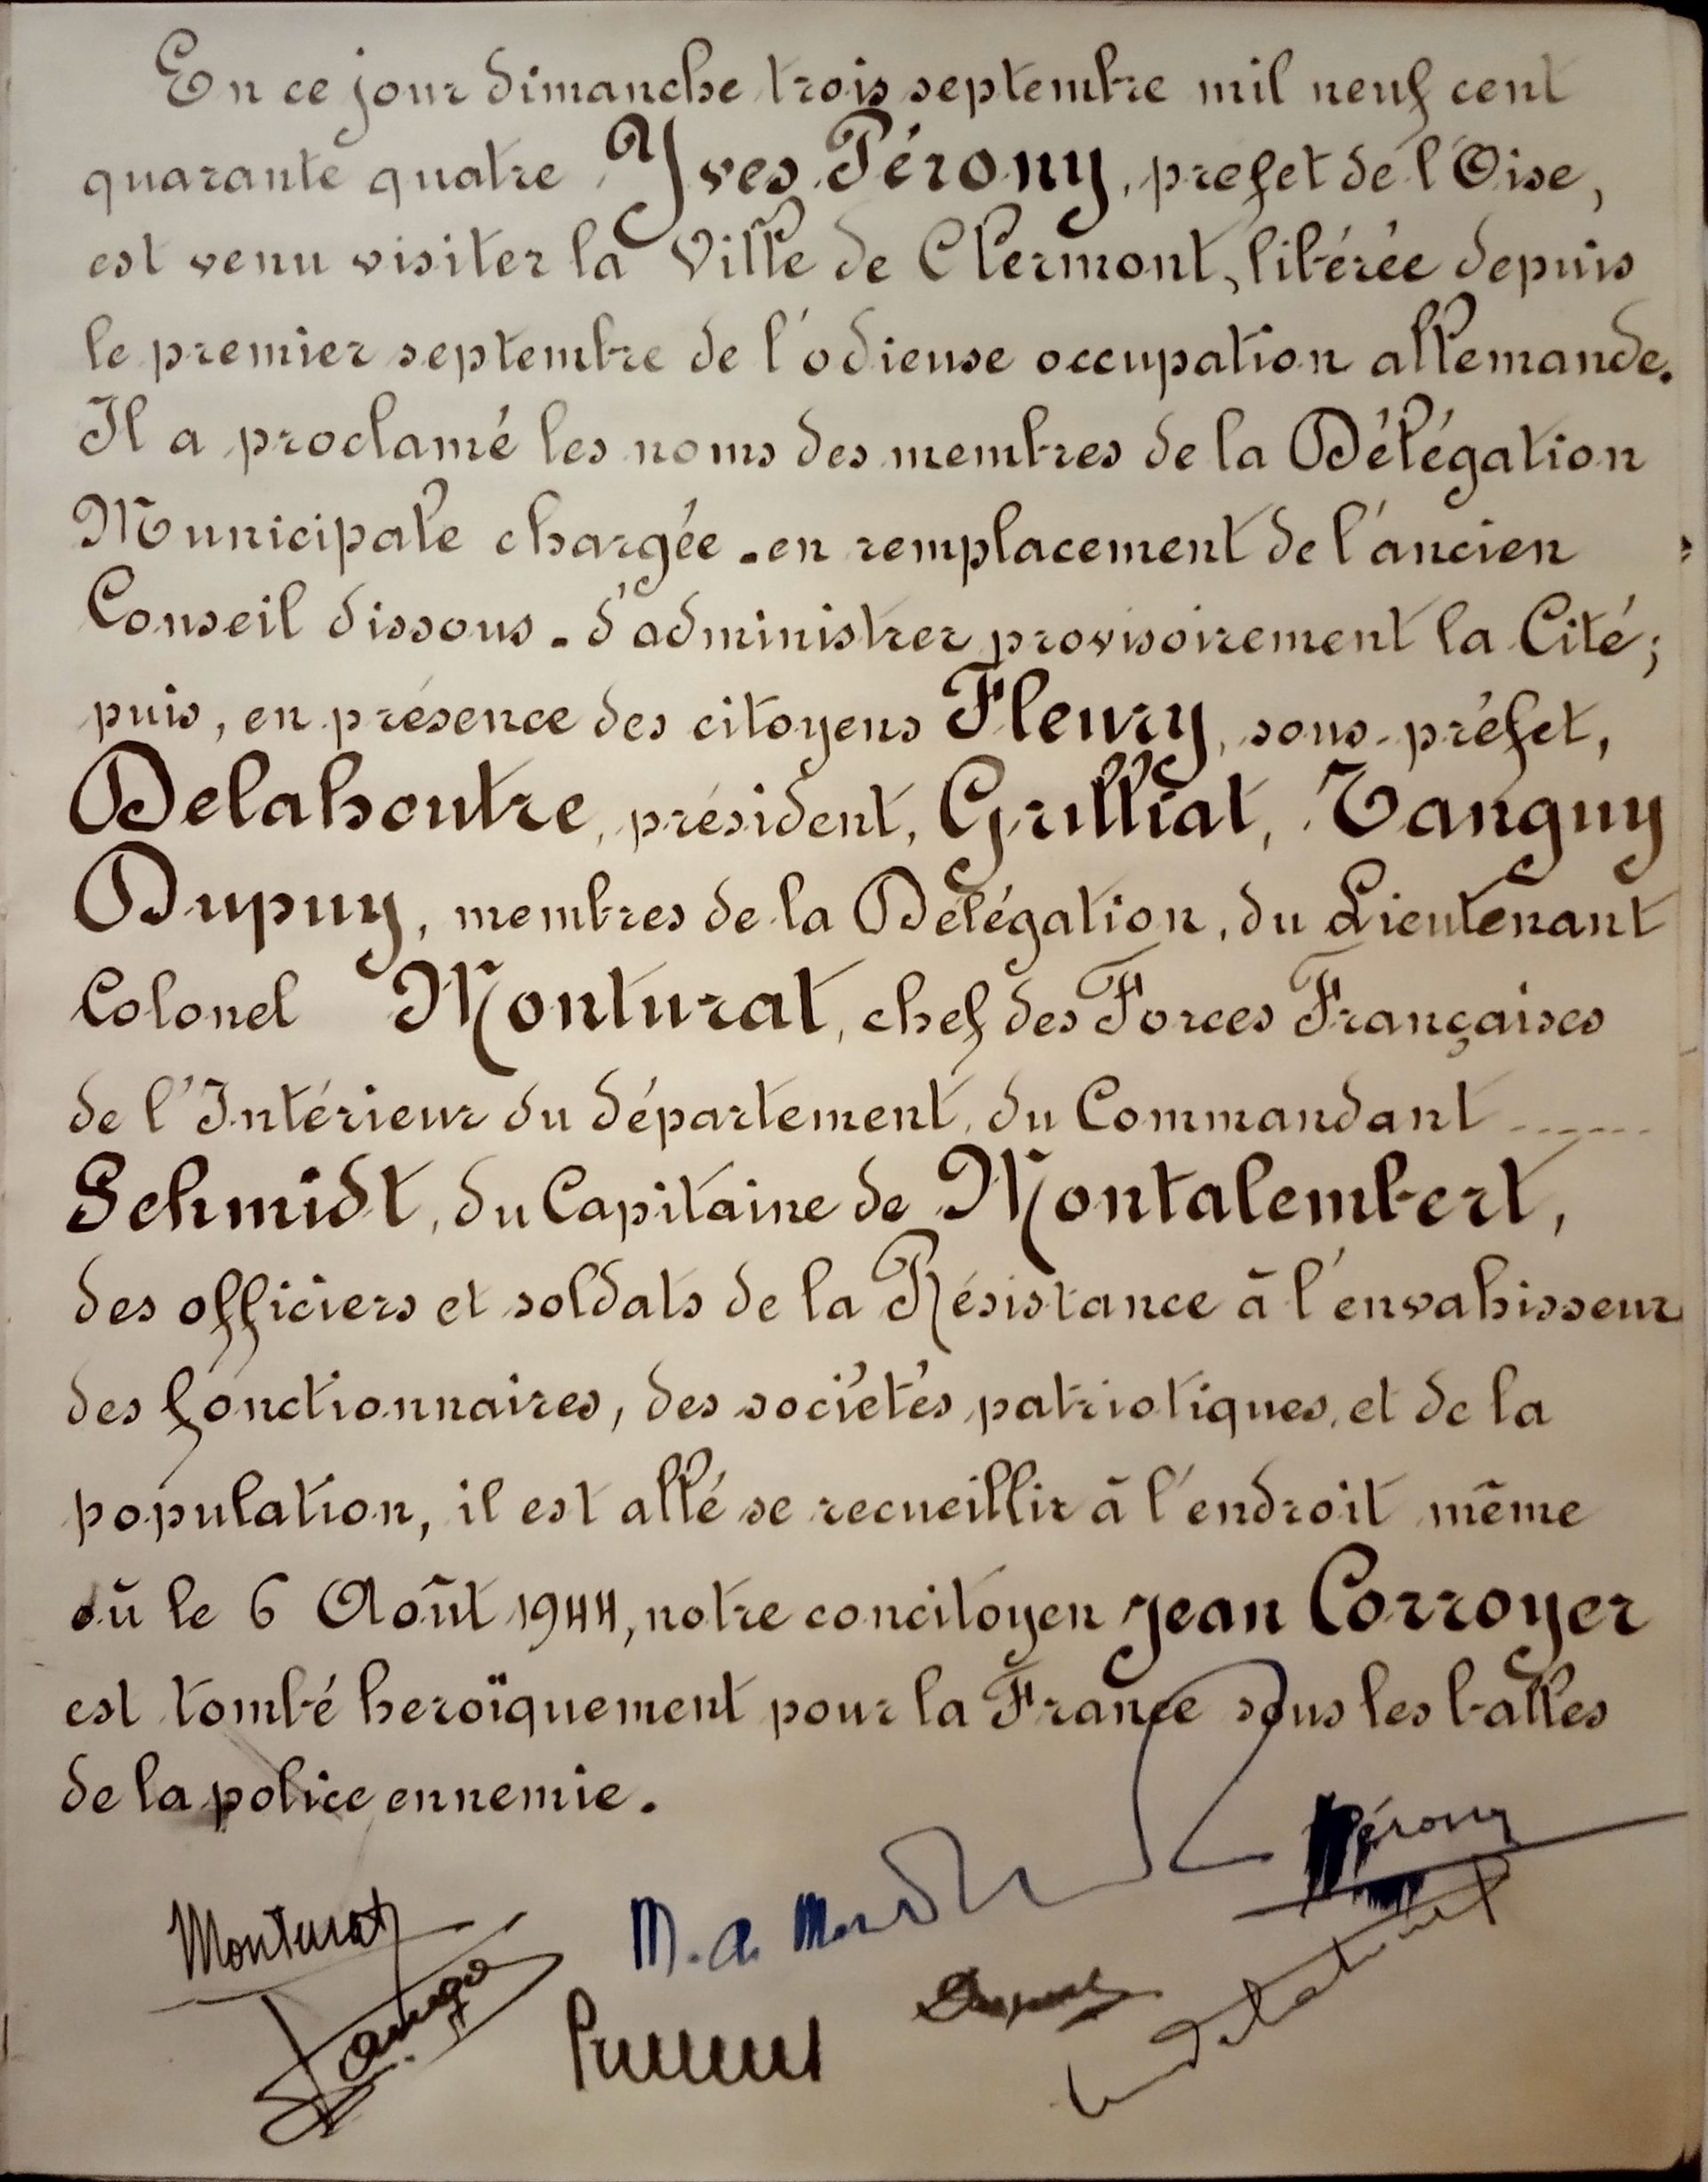 En ce jour dimanche trois septembre mil neuf cent
quarante quatre Yves Pérony, préfet de l'Oise,
est venu visiter la Ville de Clermont, libérée depuis
le premier septembre de l'odieuse occupation allemande.
Il a proclamé les noms des membres de la Délégation
Municipale chargée - en remplacement de l'ancien
Conseil dissous - d'administrer provisoirement la Cité ;
puis, en présence des citoyens Fleury, sous-préfet,
Delahoutre, président, Grilliat, Tanguy
Dupuy, membres de la Délégation, du Lieutenant
Colonel Monturat, chef des Forces Françaises
de l'Intérieur du département, du Commandant ......
Schmidt, du Capitaine de Montalembert,
des officiers et soldats de la Résistance à l'envahisseur
des fonctionnaires, des sociétés patriotiques, et de la
population, il est allé se recueillir à l'endroit même
où le 6 Août 1944, notre concitoyen Jean Corroyer
est tombé heroïquement pour la France sous les balles
de la police ennemie.
Pérony
Monturat